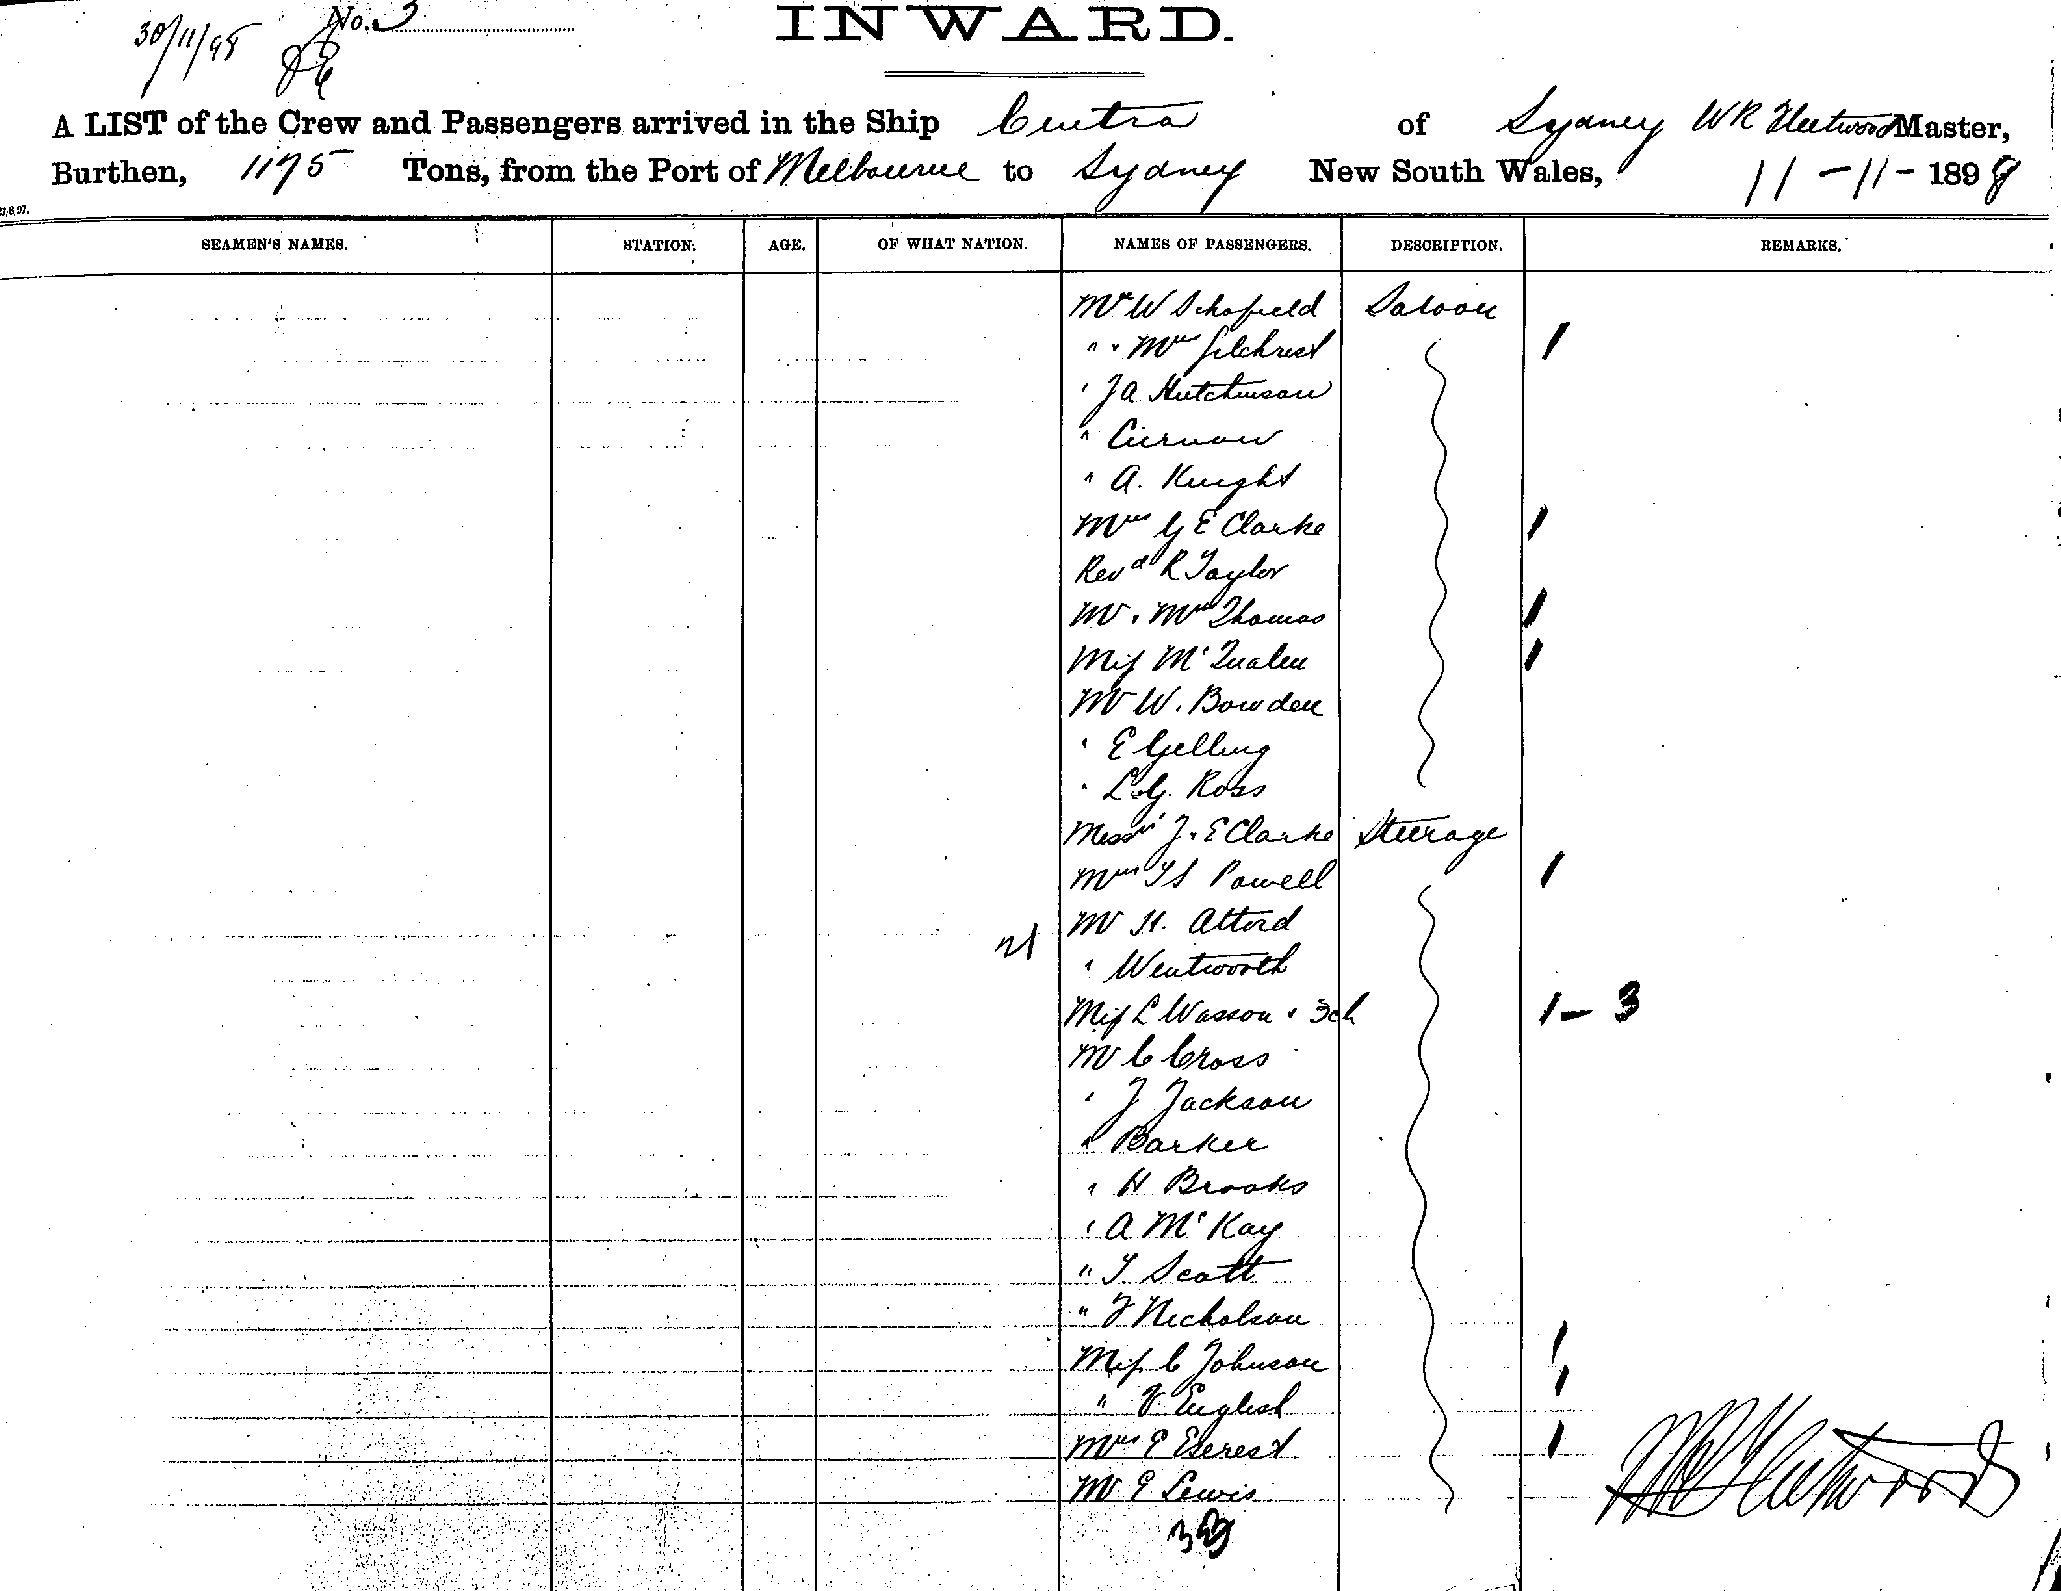 30/11/98
No. 3
INWARD.
A LIST of the Crew and Passengers arrived in the Ship Cintra of Sydney W R Fleetwood Master,
Burthen, 1175 Tons, from the Port of Melbourne to Sydney New South Wales, 11-11-1898
SEAMEN'S NAMES. STATION. AGE. OF WHAT NATION. NAMES OF PASSENGERS. DESCRIPTION. REMARKS.
Mr W Schofield Saloon
" " Mrs Gilchrist 1
" J A Hutchinson
" Curnow
" A. Knight
Mrs G E Clarke 1
Revd R Taylor
Mr " Mrs Thomas 1
Miss McQualen 1
Mr W. Bowden
" E Gelling
" L.G. Ross
Messrs J. E Clarke Steerage
Mrs T S Powell 1
Mr H. Attord
" Wentworth
Miss L Wasson " 3ch 1 - 3
Mr C Cross
" J Jackson
" Barker
" H Brooks
" A McKay
" T Scott
" F Nicholson
Miss C Johnson 1
" V English 1
Mrs E Everest 1
Mr E Lewis
W R Fleetwood